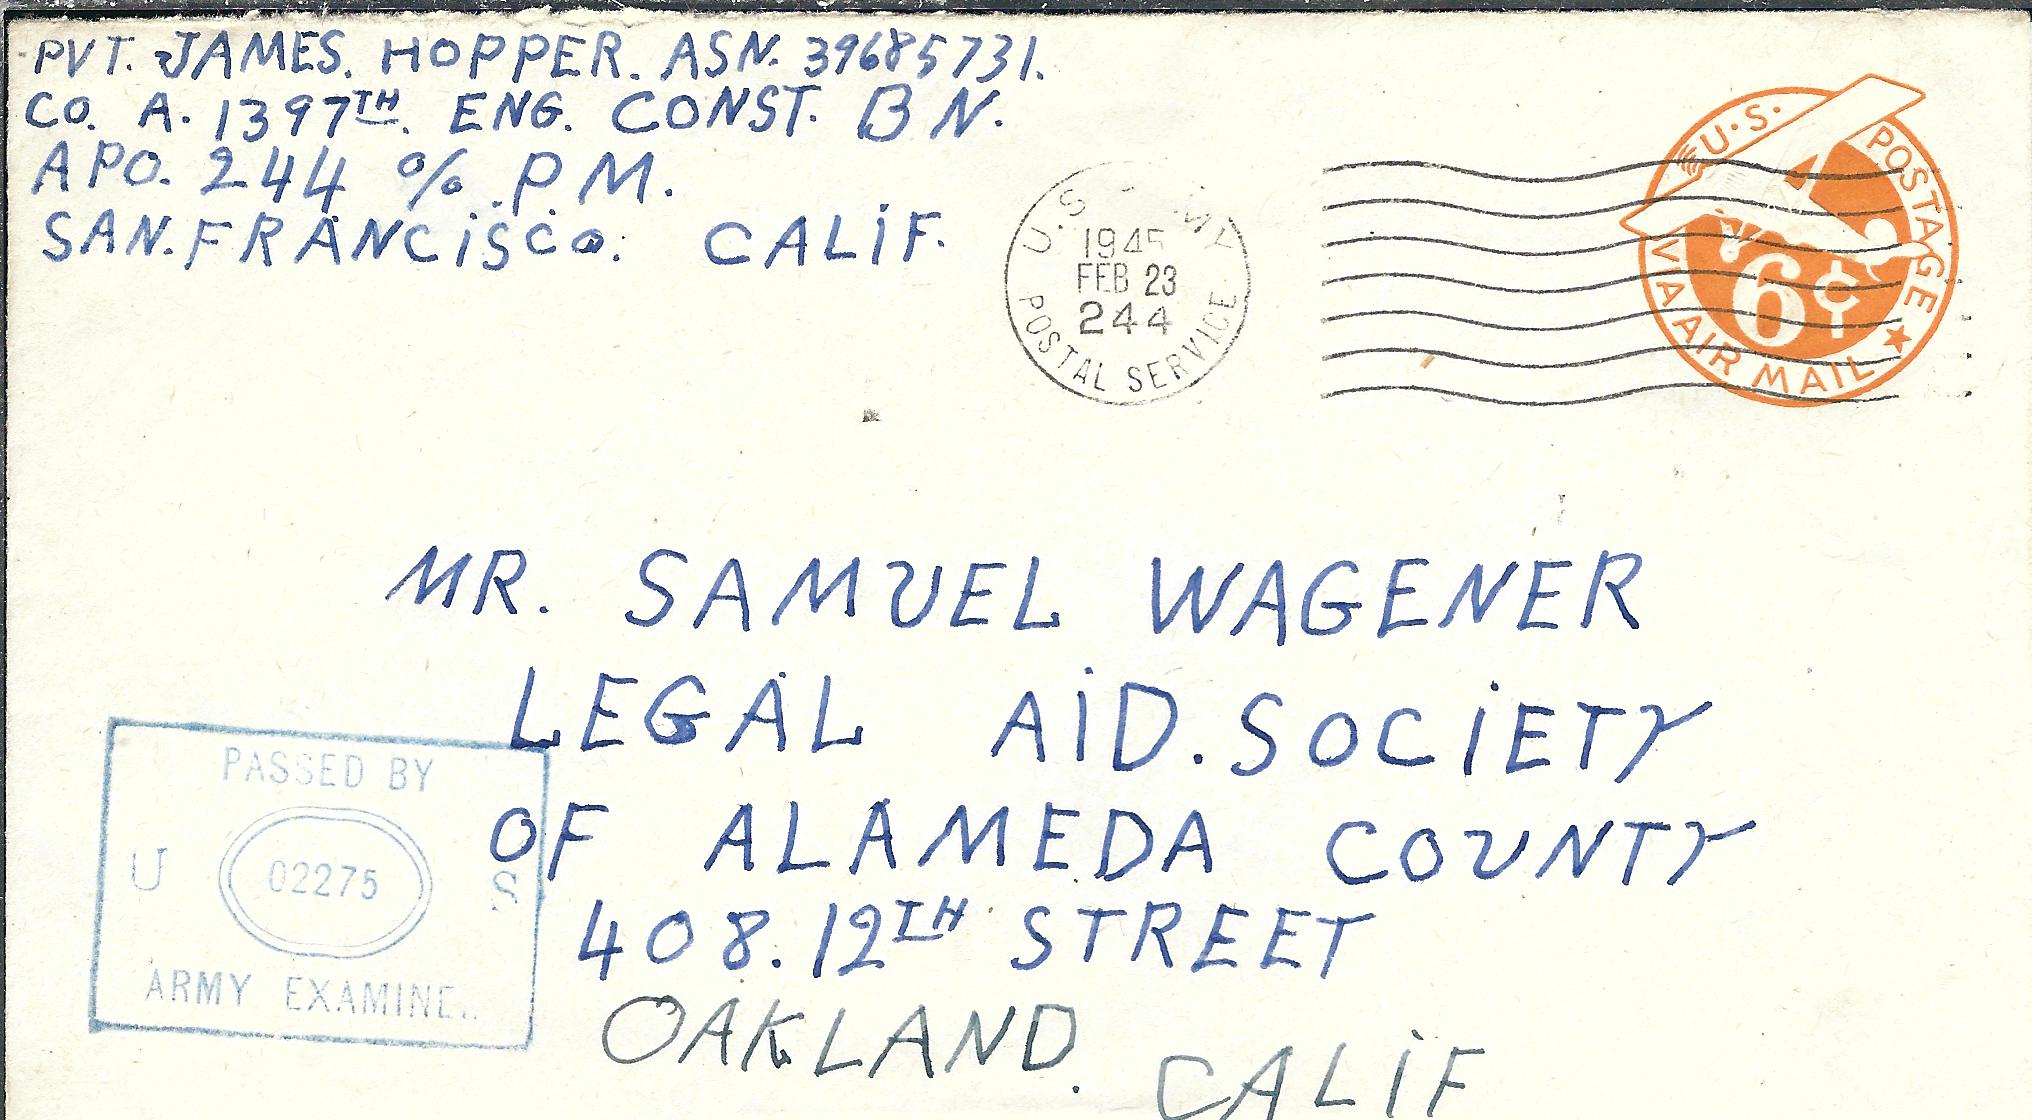 PVT. JAMES. HOPPER. ASN. 39685731.
CO. A. 1397TH. ENG. CONST. BN.
APO. 244 % P M.
SAN. FRANCISCO. CALIF.
U.S.
1945
FEB 23
244
POSTAL SERVICE
U.S. POSTAGE
6¢
VIA AIR MAIL
MR. SAMUEL WAGENER
LEGAL AID. SOCIETY
OF ALAMEDA COUNTY
408. 12TH STREET
OAKLAND. CALIF
PASSED BY
U 02275 S
ARMY